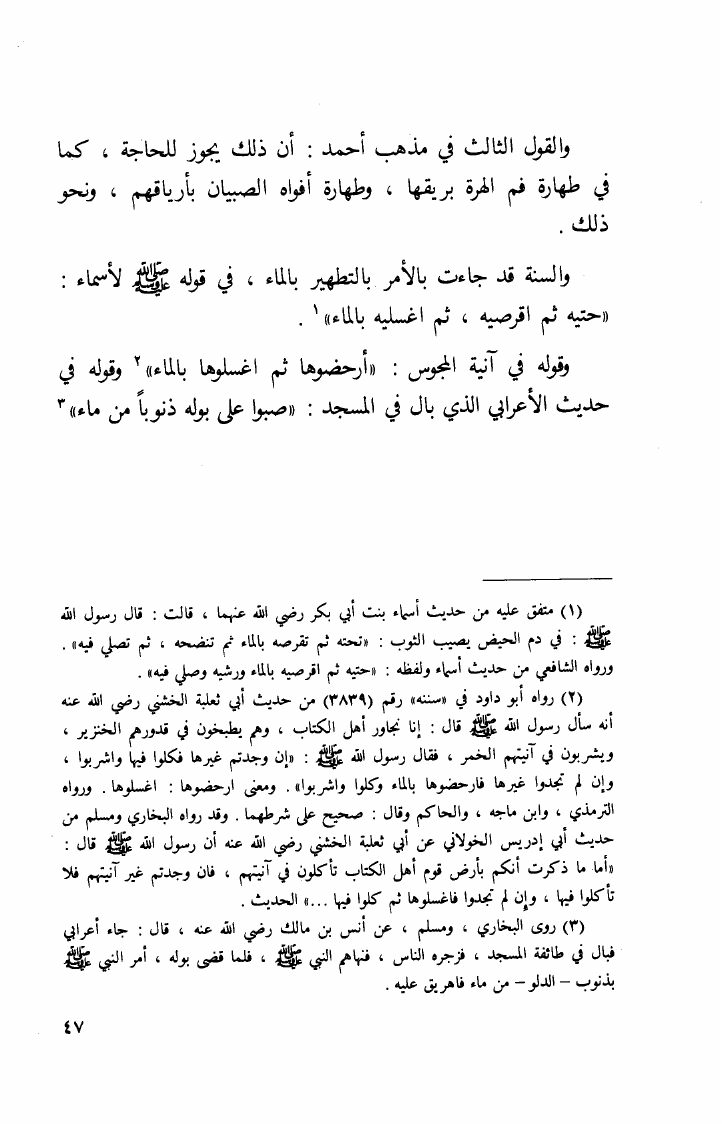 والقول الثالث في مذهب أحمد : أن ذلك يجوز للحاجة ، كما
في طهارة فم الهرة بريقها ، وطهارة أفواه الصبيان بأرياقهم ، ونحو
ذلك .
والسنة قد جاءت بالأمر بالتطهير بالماء ، في قوله ﷺ لأسماء :
«حتيه ثم اقرصيه ، ثم اغسليه بالماء»١ .
وقوله في آنية المجوس : «أرحضوها ثم اغسلوها بالماء»٢ وقوله في
حديث الأعرابي الذي بال في المسجد : «صبوا على بوله ذنوباً من ماء»٣
(١) متفق عليه من حديث أسماء بنت أبي بكر رضي الله عنهما ، قالت : قال رسول الله
ﷺ : في دم الحيض يصيب الثوب : «تحته ثم تقرصه بالماء ثم تنضحه ، ثم تصلي فيه» .
ورواه الشافعي من حديث أسماء ولفظه : «حتيه ثم اقرصيه بالماء ورشيه وصلي فيه» .
(٢) رواه أبو داود في «سننه» رقم (٣٨٣٩) من حديث أبي ثعلبة الخشني رضي الله عنه
أنه سأل رسول الله ﷺ قال : إنا نجاور أهل الكتاب ، وهم يطبخون في قدورهم الخنزير ،
ويشربون في آنيتهم الخمر ، فقال رسول الله ﷺ : «إن وجدتم غيرها فكلوا فيها واشربوا ،
وإن لم تجدوا غيرها فارحضوها بالماء وكلوا واشربوا» . ومعنى ارحضوها : اغسلوها . ورواه
الترمذي ، وابن ماجه ، والحاكم وقال : صحيح على شرطهما . وقد رواه البخاري ومسلم من
حديث أبي إدريس الخولاني عن أبي ثعلبة الخشني رضي الله عنه أن رسول الله ﷺ قال :
«أما ما ذكرت أنكم بأرض قوم أهل الكتاب تأكلون في آنيتهم ، فان وجدتم غير آنيتهم فلا
تأكلوا فيها ، وإن لم تجدوا فاغسلوها ثم كلوا فيها ...» الحديث .
(٣) روى البخاري ، ومسلم ، عن أنس بن مالك رضي الله عنه ، قال : جاء أعرابي
فبال في طائفة المسجد ، فزجره الناس ، فنهاهم النبي ﷺ ، فلما قضى بوله ، أمر النبي ﷺ
بذنوب – الدلو – من ماء فاهريق عليه .
٤٧